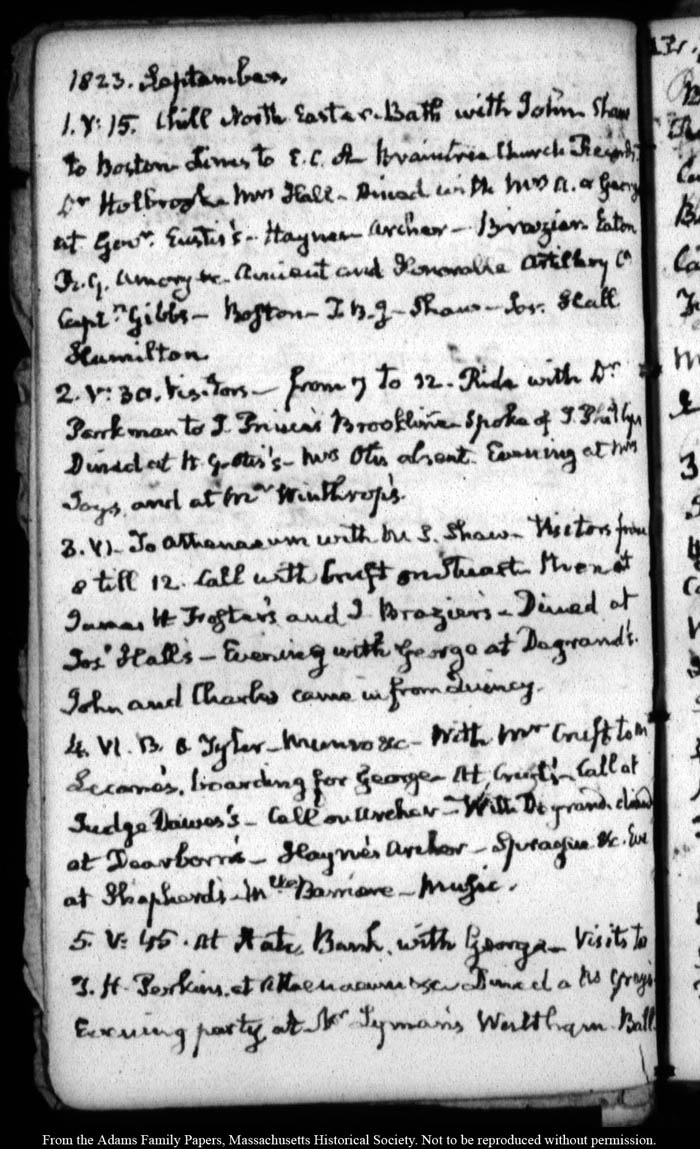 1823. September.
1. V: 15. Chill North Easter. Bath with John. Shaw
to Boston Lines to E. C. A. Braintree Church Records.
Dr Holbrook Mrs Hall - Dined with Mrs A. & George
at Govr. Eustis's - Haynes Archer - Brazier Eaton
F. G. Amory &c. Ancient and Honorable Artillery Co
Capt.n Gibbs - Boston - Shaw - Jos. Hall
Hamilton
2. V: 30. Visitors - from 7 to 12. Ride with Dr
Parkman to J. Brookline Spoke of
Dined at H. G. Otis's - Mrs Otis absent. Evening at Mrs
and at Mr Winthrop's.
3. VI. To Athenaeum with W. S. Shaw - Visitors from
8 till 12. Call with Cruft on Stuart. Then at
James H Foster's and J Brazier's - Dined at
Jos. Hall's - Evening with George at Degrand's.
John and Charles came in from Quincy.
4. VI. B. Tyler - Munro &c - With Mr Cruft to
boarding for George - At Cruft's - Call at
Judge Dawes's - Call on Archer - With Degrand. dined
at Dearborn's - Haynes Archer - Sprague &c. Eve
at Shepherd's - Music.
5. V: 45. At State Bank, with George - Visits to
T. H. Perkins, at Athenaeum &c Dined a
Evening party at Mr Lyman's Waltham. Ball.
From the Adams Family Papers, Massachusetts Historical Society. Not to be reproduced without permission.